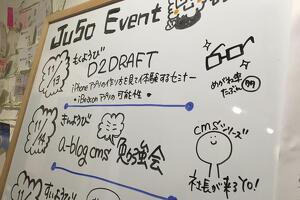 JuSo Event
11/13 もくようび
D2DRAFT
iPhoneアプリの作り方を見て体験するセミナー
・iBeaconアプリの可能性・
11/14 きんようび
a-blog cms 勉強会
すいようび
めがね率
たぶん
cmsシリーズ
社長が来るYO!